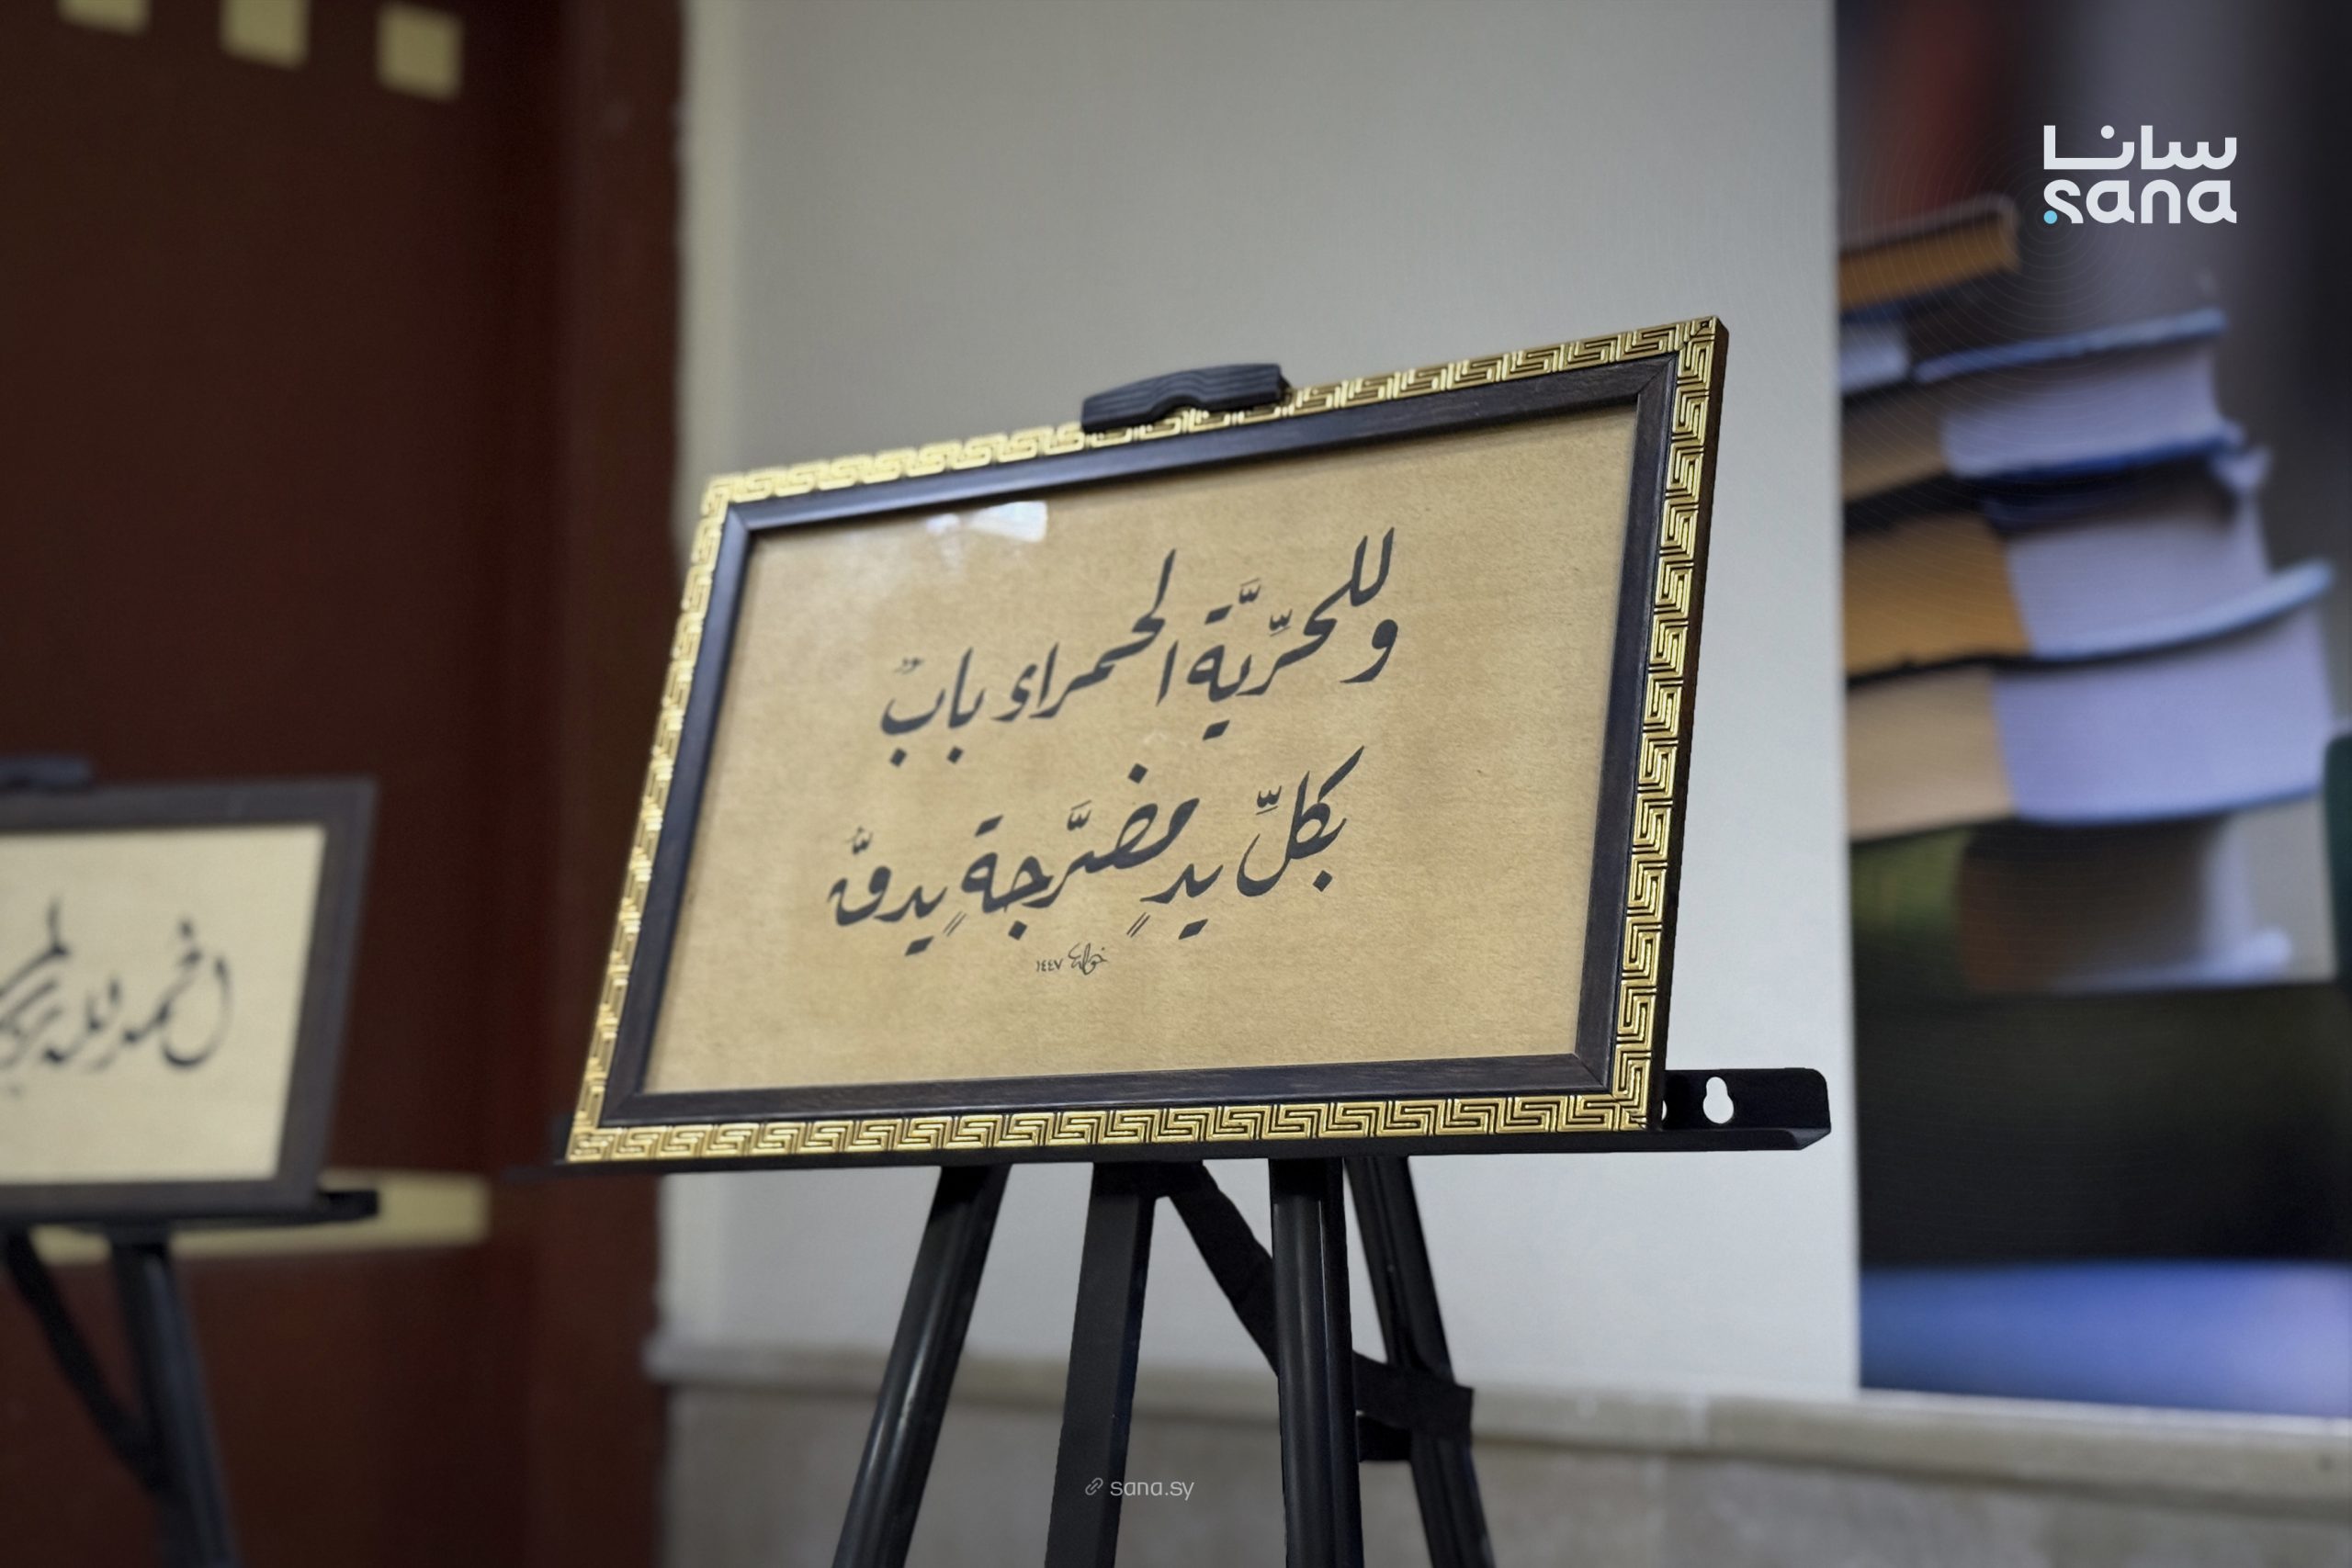 سانا
sana
وللحرِّيَّة الحمراء بابٌ
بكلِّ يدٍ مضرَّجةٍ يدقُّ
١٤٤٧
الحمد لله
sana.sy